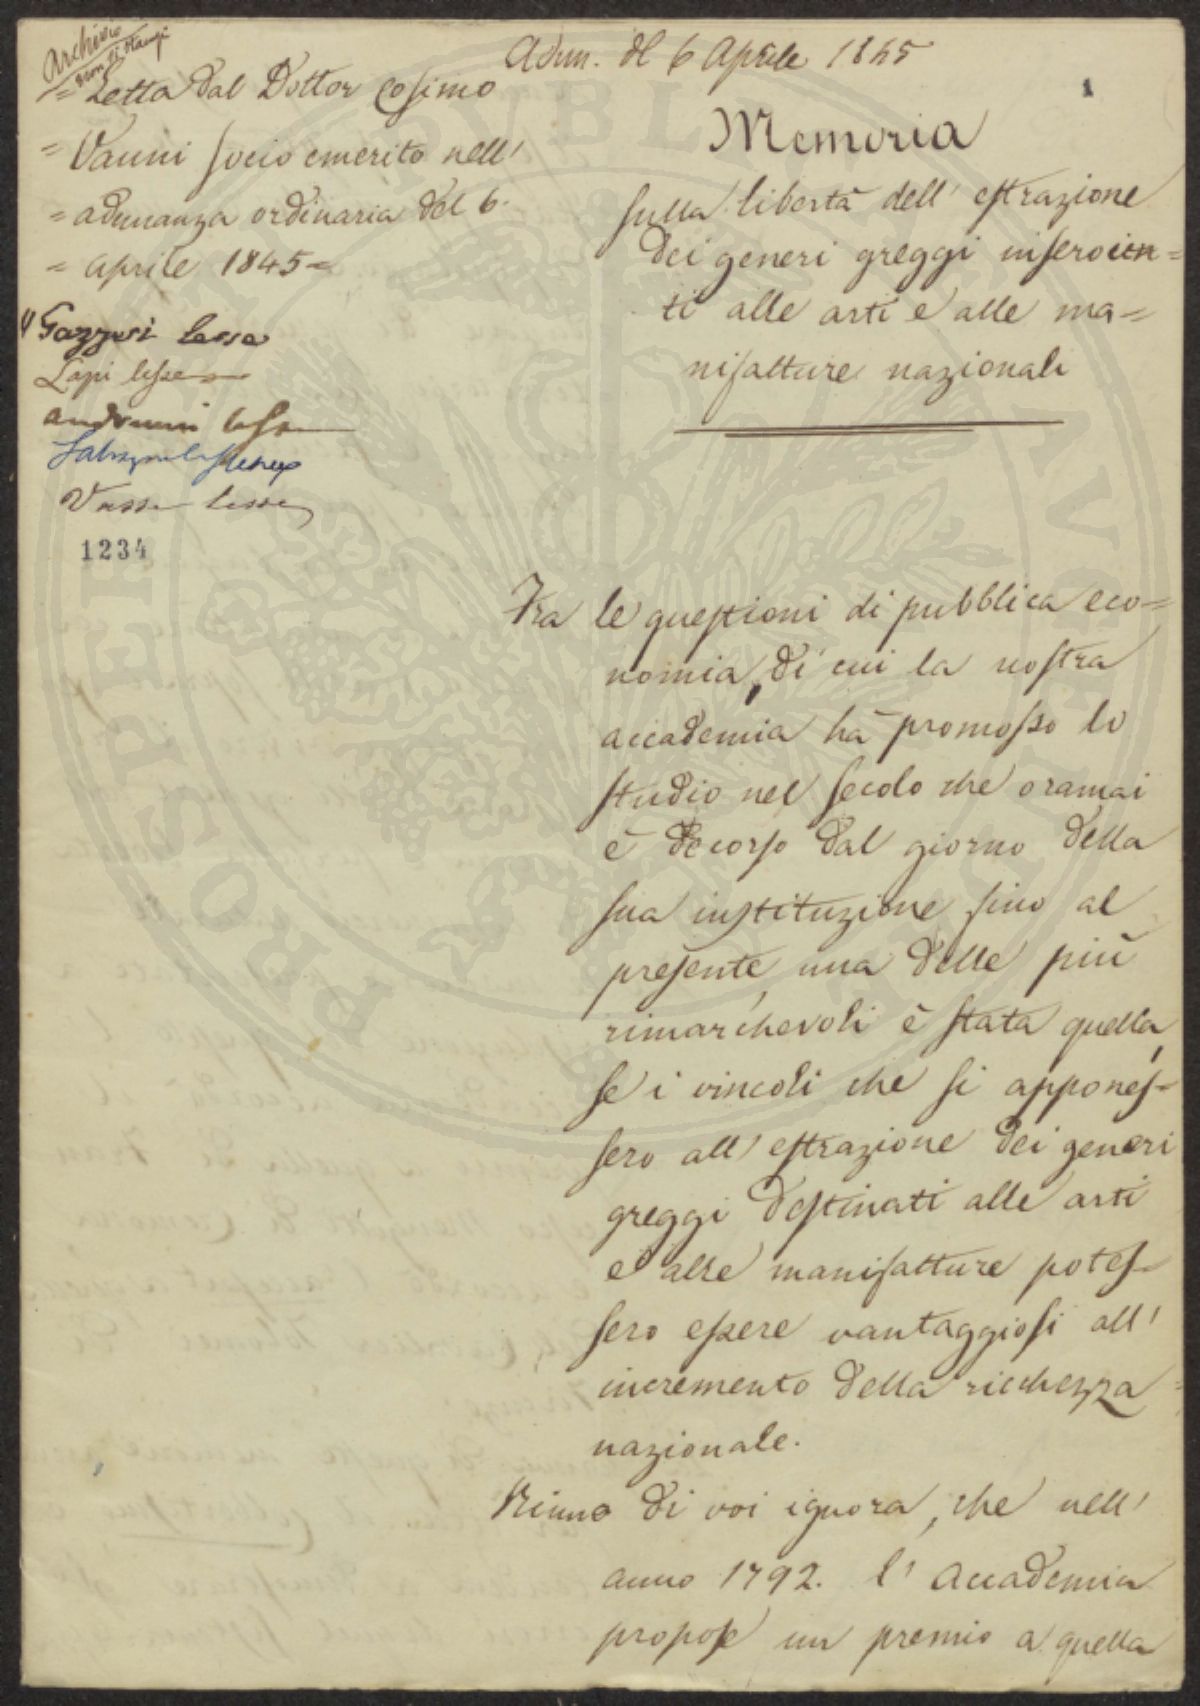 Archivio
Adun. del 6 Aprile 1845
1
= Letta dal Dottor Cosimo
= Vanni socio emerito nell'
= adunanza ordinaria del 6.
= aprile 1845 =
Lapi lesse
lesse
1234
Memoria
sulla libertà dell' estrazione
dei generi greggi inservien=
ti alle arti e alle ma=
nifatture nazionali
Fra le questioni di pubblica eco=
nomia, di cui la nostra
accademia ha promosso lo
studio nel secolo che oramai
è decorso dal giorno della
sua instituzione fino al
presente, una delle più
rimarchevoli è stata quella,
se i vincoli che si appones=
sero all' estrazione dei generi
greggi destinati alle arti
e alle manifatture potes=
sero essere vantaggiosi all'
incremento della ricchezza
nazionale.
Niuno di voi ignora, che nell'
anno 1792. l' Accademia
propose un premio a quella
PROSPERITATI PVBLICAE AVGENDAE